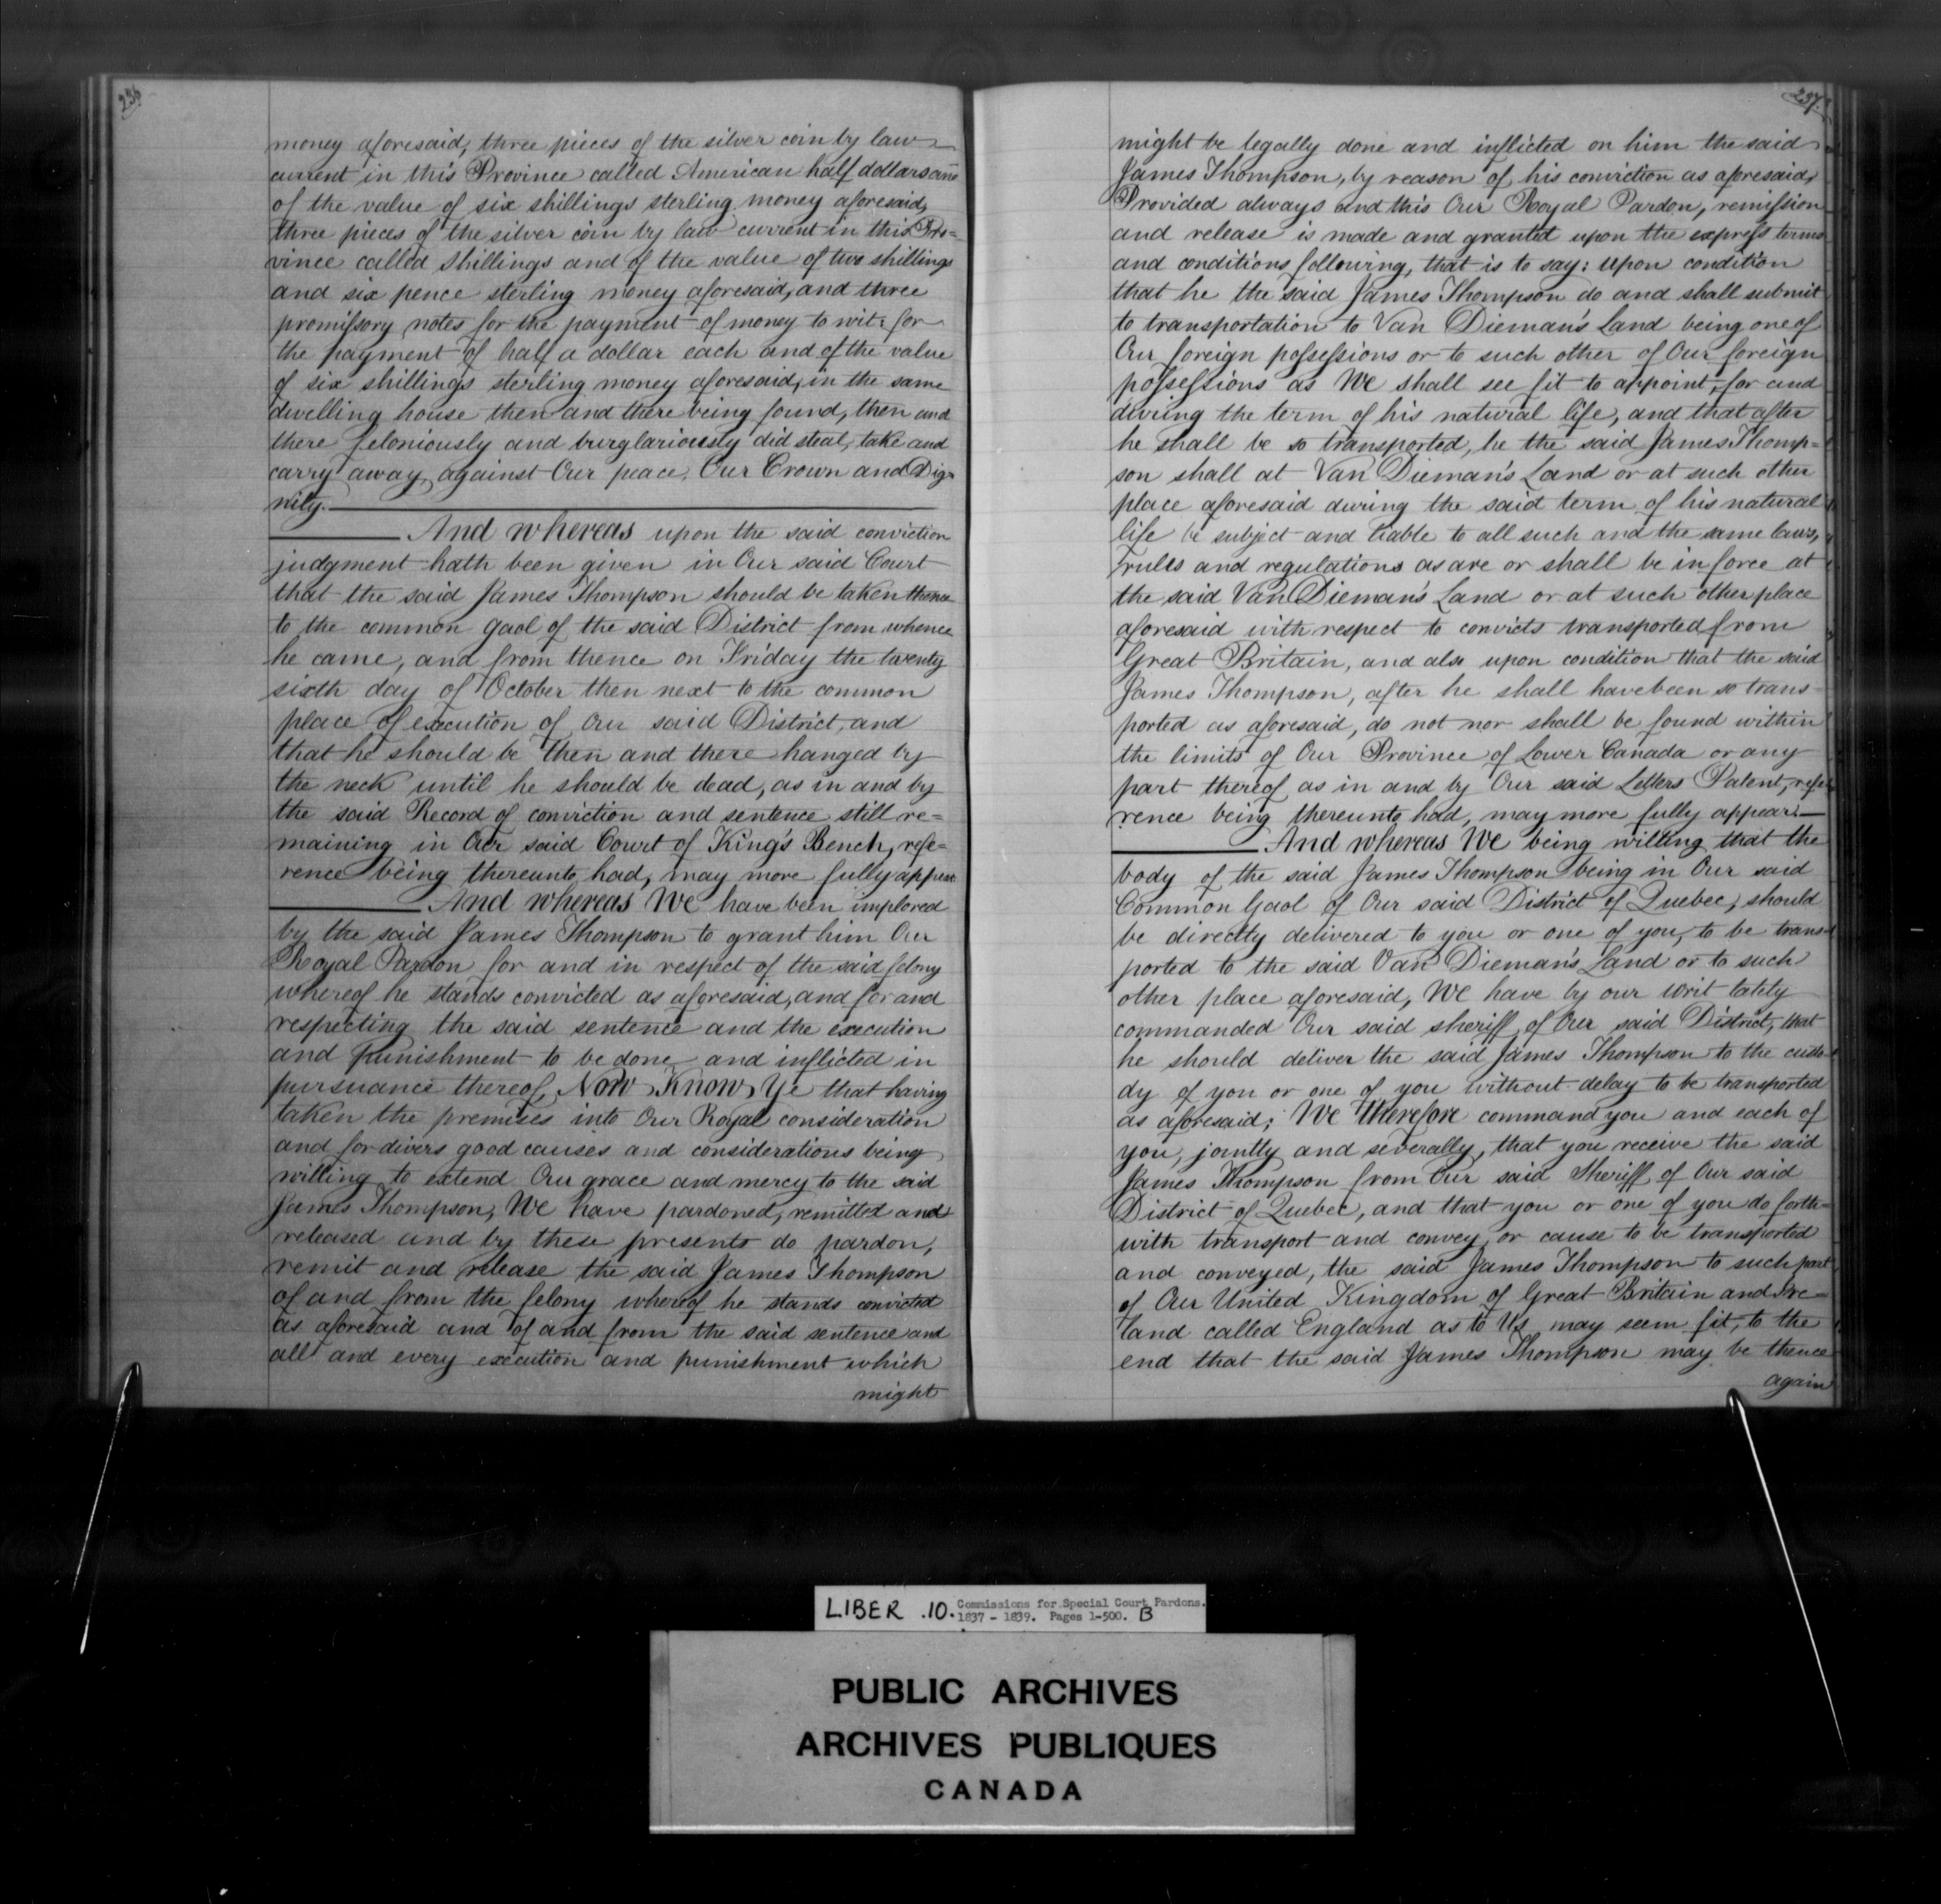 236
money aforesaid, three pieces of the silver coin by law
current in this Province called American half dollars and
of the value of six shillings sterling money aforesaid,
three pieces of the silver coin by law current in this Pro=
vince called shillings and of the value of two shillings
and six pence sterling money aforesaid, and three
promissory notes for the payment of money to wit: for
the payment of half a dollar each and of the value
of six shillings sterling money aforesaid, in the same
dwelling house then and there being found, then and
there feloniously and burglariously did steal, take and
carry away, against Our peace, Our Crown and Dig=
nity.
And whereas upon the said conviction
judgment hath been given in Our said Court
that the said James Thompson should be taken thence
to the common gaol of the said District from whence
he came, and from thence on Friday the twenty
sixth day of October then next to the common
place of execution of Our said District, and
that he should be then and there hanged by
the neck until he should be dead, as in and by
the said Record of conviction and sentence still re=
maining in Our said Court of King's Bench, refe=
rence being thereunto had, may more fully appear
And whereas We have been implored
by the said James Thompson to grant him Our
Royal Pardon for and in respect of the said felony
whereof he stands convicted as aforesaid, and for and
respecting the said sentence and the execution
and punishment to be done and inflicted in
pursuance thereof, Now Know Ye that having
taken the premises into Our Royal consideration
and for divers good causes and considerations being
willing to extend Our grace and mercy to the said
James Thompson, We have pardoned, remitted and
released and by these presents do pardon,
remit and release the said James Thompson
of and from the felony whereof he stands convicted
as aforesaid and of and from the said sentence and
all and every execution and punishment which
might
237
might be legally done and inflicted on him the said
James Thompson, by reason of his conviction as aforesaid,
Provided always and this Our Royal Pardon, remission
and release is made and granted upon the express terms
and conditions following, that is to say: upon condition
that he the said James Thompson do and shall submit
to transportation to Van Dieman's Land being one of
Our foreign possessions or to such other of Our foreign
possessions as We shall see fit to appoint, for and
during the term of his natural life, and that after
he shall be so transported, he the said James Thomp=
son shall at Van Dieman's Land or at such other
place aforesaid during the said term of his natural
life be subject and liable to all such and the same laws,
rules and regulations as are or shall be in force at
the said Van Dieman's Land or at such other place
aforesaid with respect to convicts transported from
Great Britain, and also upon condition that the said
James Thompson, after he shall have been so trans=
ported as aforesaid, do not nor shall be found within
the limits of Our Province of Lower Canada or any
part thereof as in and by Our said Letters Patent, refe=
rence being thereunto had, may more fully appear.
And whereas We being willing that the
body of the said James Thompson being in Our said
Common Gaol of Our said District of Quebec, should
be directly delivered to you or one of you, to be trans=
ported to the said Van Dieman's Land or to such
other place aforesaid, We have by our writ lately
commanded Our said sheriff of Our said District, that
he should deliver the said James Thompson to the custo=
dy of you or one of you without delay to be transported
as aforesaid; We therefore command you and each of
you, jointly and severally, that you receive the said
James Thompson from Our said Sheriff of Our said
District of Quebec, and that you or one of you do forth=
with transport and convey, or cause to be transported
and conveyed, the said James Thompson to such part
of Our United Kingdom of Great Britain and Ire=
land called England as to Us may seem fit, to the
end that the said James Thompson may be thence
again
LIBER .10. Commissions for Special Court Pardons.
1837 - 1839. Pages 1-500. B
PUBLIC ARCHIVES
ARCHIVES PUBLIQUES
CANADA